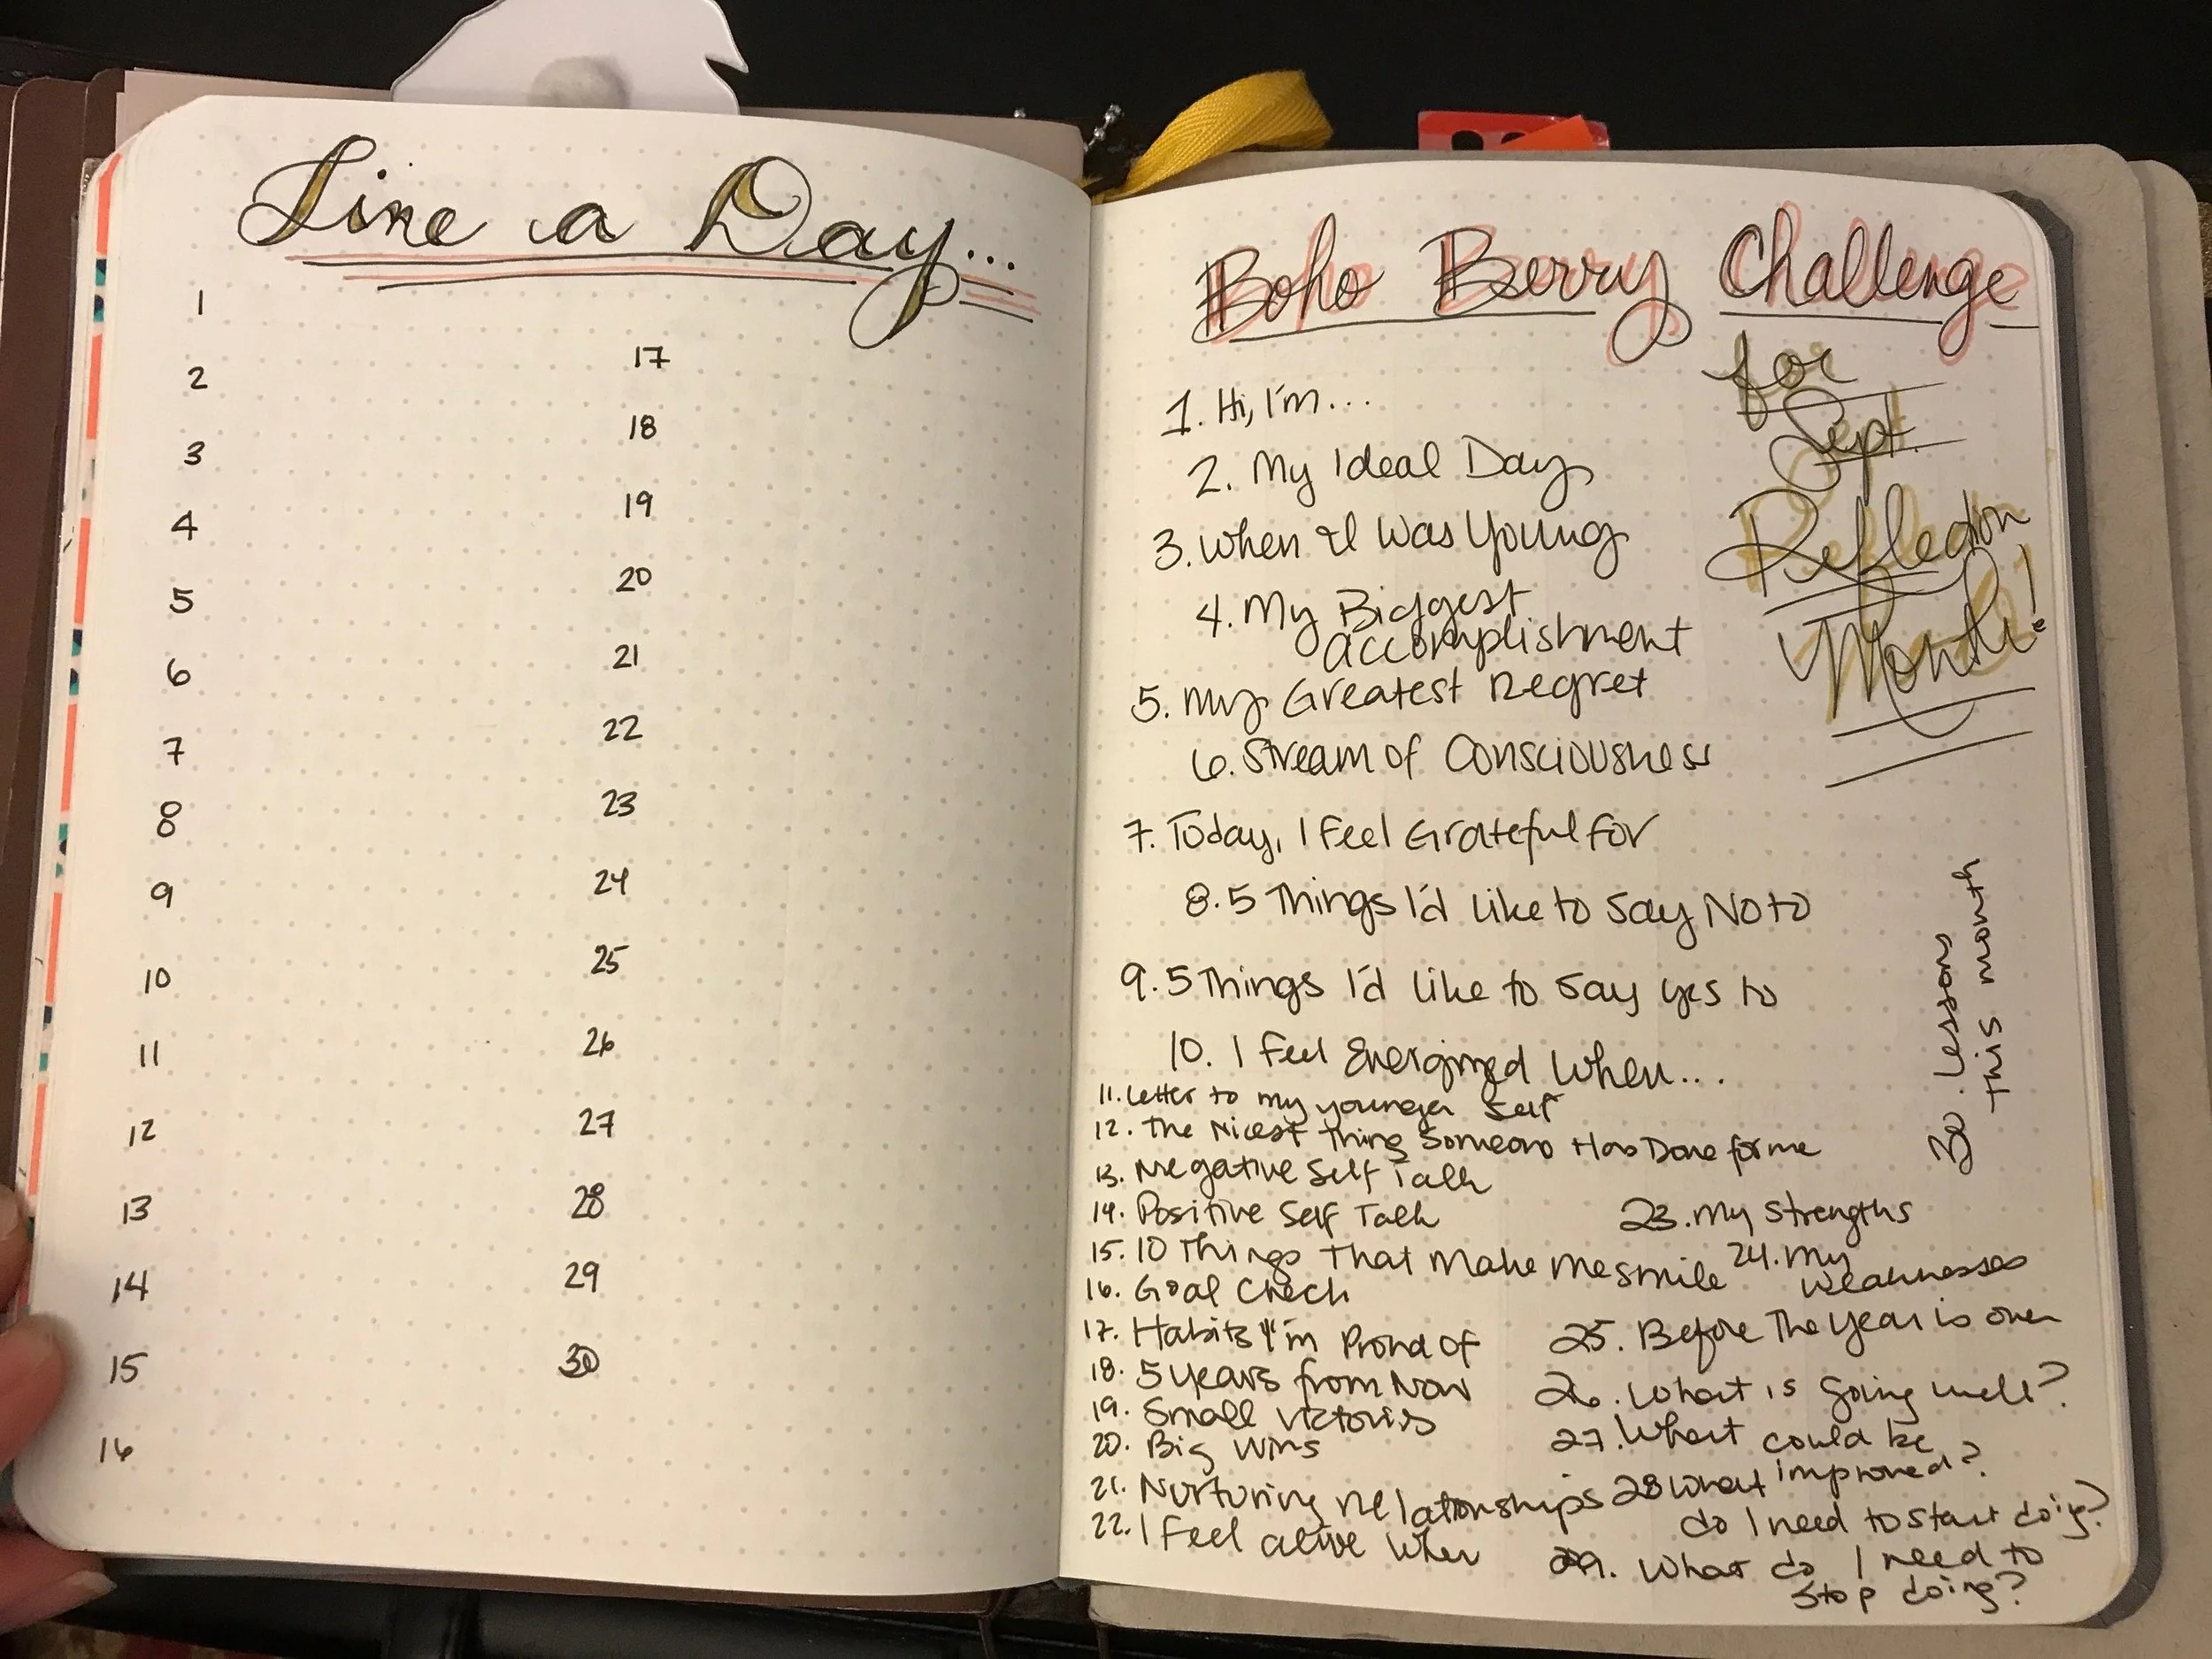 Line a Day...
1
2
3
4
5
6
7
8
9
10
11
12
13
14
15
16
17
18
19
20
21
22
23
24
25
26
27
28
29
30
Boho Berry Challenge
for
Sept.
Reflection
Month!
1. Hi, I'm...
2. My Ideal Day
3. When I Was Young
4. My Biggest
accomplishment
5. My Greatest Regret
6. Stream of Consciousness
7. Today, I Feel Grateful for
8. 5 Things I'd Like to Say No to
9. 5 Things I'd Like to Say yes to
10. I Feel Energized When...
11. Letter to my younger Self
12. The Nicest Thing Someone Has Done for me
13. Negative Self Talk
14. Positive Self Talk
15. 10 Things That Make Me smile
16. Goal Check
17. Habits I'm Proud of
18. 5 Years from Now
19. Small victories
20. Big Wins
21. Nurturing Relationships
22. I Feel alive When
23. My Strengths
24. My
Weaknesses
25. Before The Year is over
26. What is going well?
27. What could be
improved?
28 What
do I need to start doing?
29. What do I need to
stop doing?
30. Lessons
this month